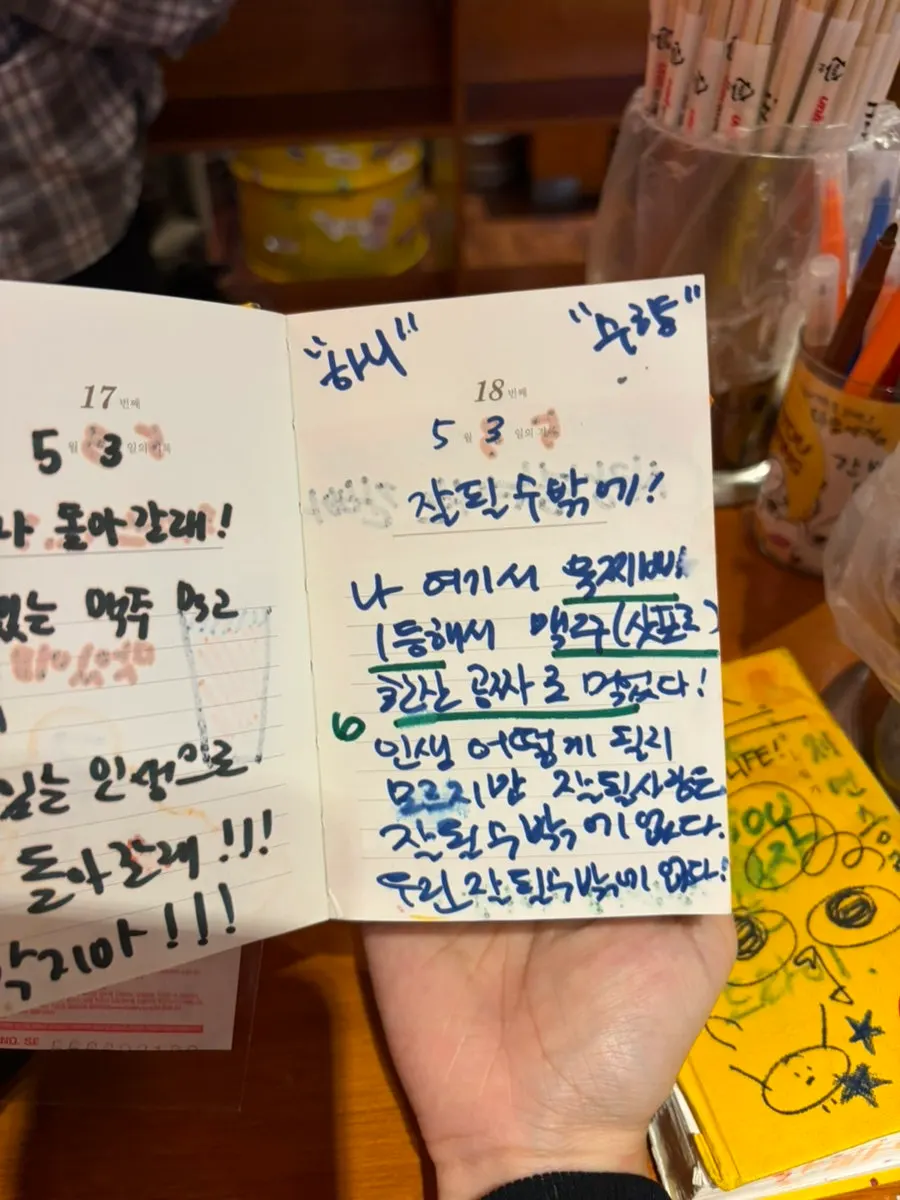 17 번째
5 월 3 일의 기록
돌아갈래!
있는 맥주 먹고
있는 인생으로
돌아갈래!!!
막지마!!!
"하니" "수량"
18 번째
5 월 3 일의 기록
잘될수밖에!
나 여기서 묵찌빠
1등해서 맥주(삿포로)
한잔 공짜로 먹었다!
인생 어떻게 될지
모르지만 잘될사람은
잘될수밖에 없다.
우린 잘될수밖에 없다!
LIFE!
NO. SE